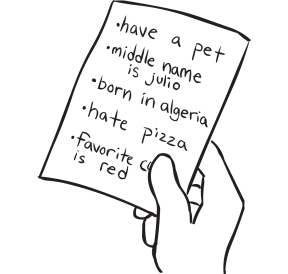 •have a pet
•middle name
is julio
•born in algeria
•hate pizza
•favorite
is red